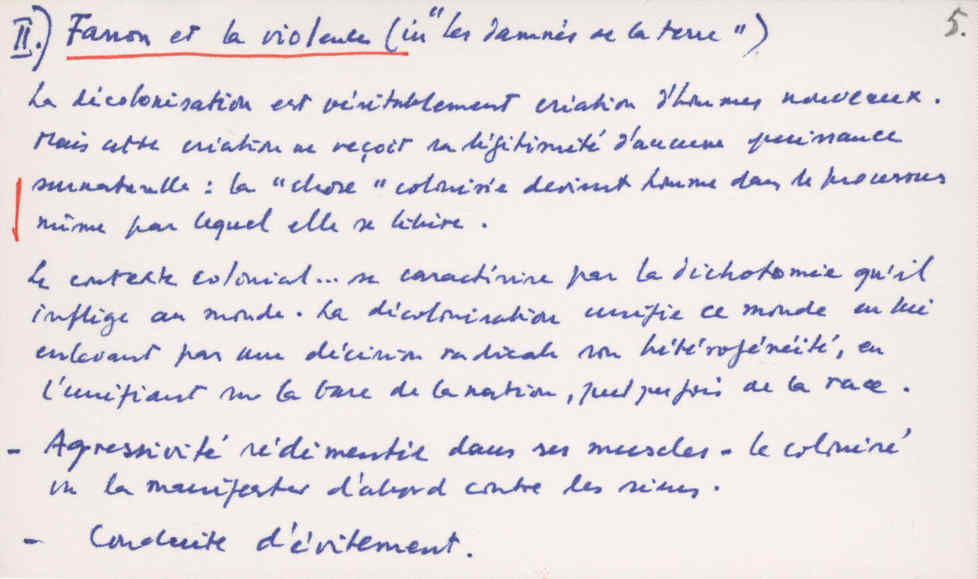 II.) Fanon et la violence (in "les damnés de la terre")
5.
La décolonisation est véritablement création d'hommes nouveaux.
Mais cette création ne reçoit sa légitimité d'aucune puissance
surnaturelle : la "chose" colonisée devient homme dans le processus
même par lequel elle se libère.
Le contexte colonial... se caractérise par la dichotomie qu'il
inflige au monde. La décolonisation unifie ce monde en lui
enlevant par une décision radicale son hétérogénéité, en
l'unifiant sur la base de la nation, quelquefois de la race.
- Agressivité sédimentée dans ses muscles - le colonisé
va la manifester d'abord contre les siens.
- Conduite d'évitement.